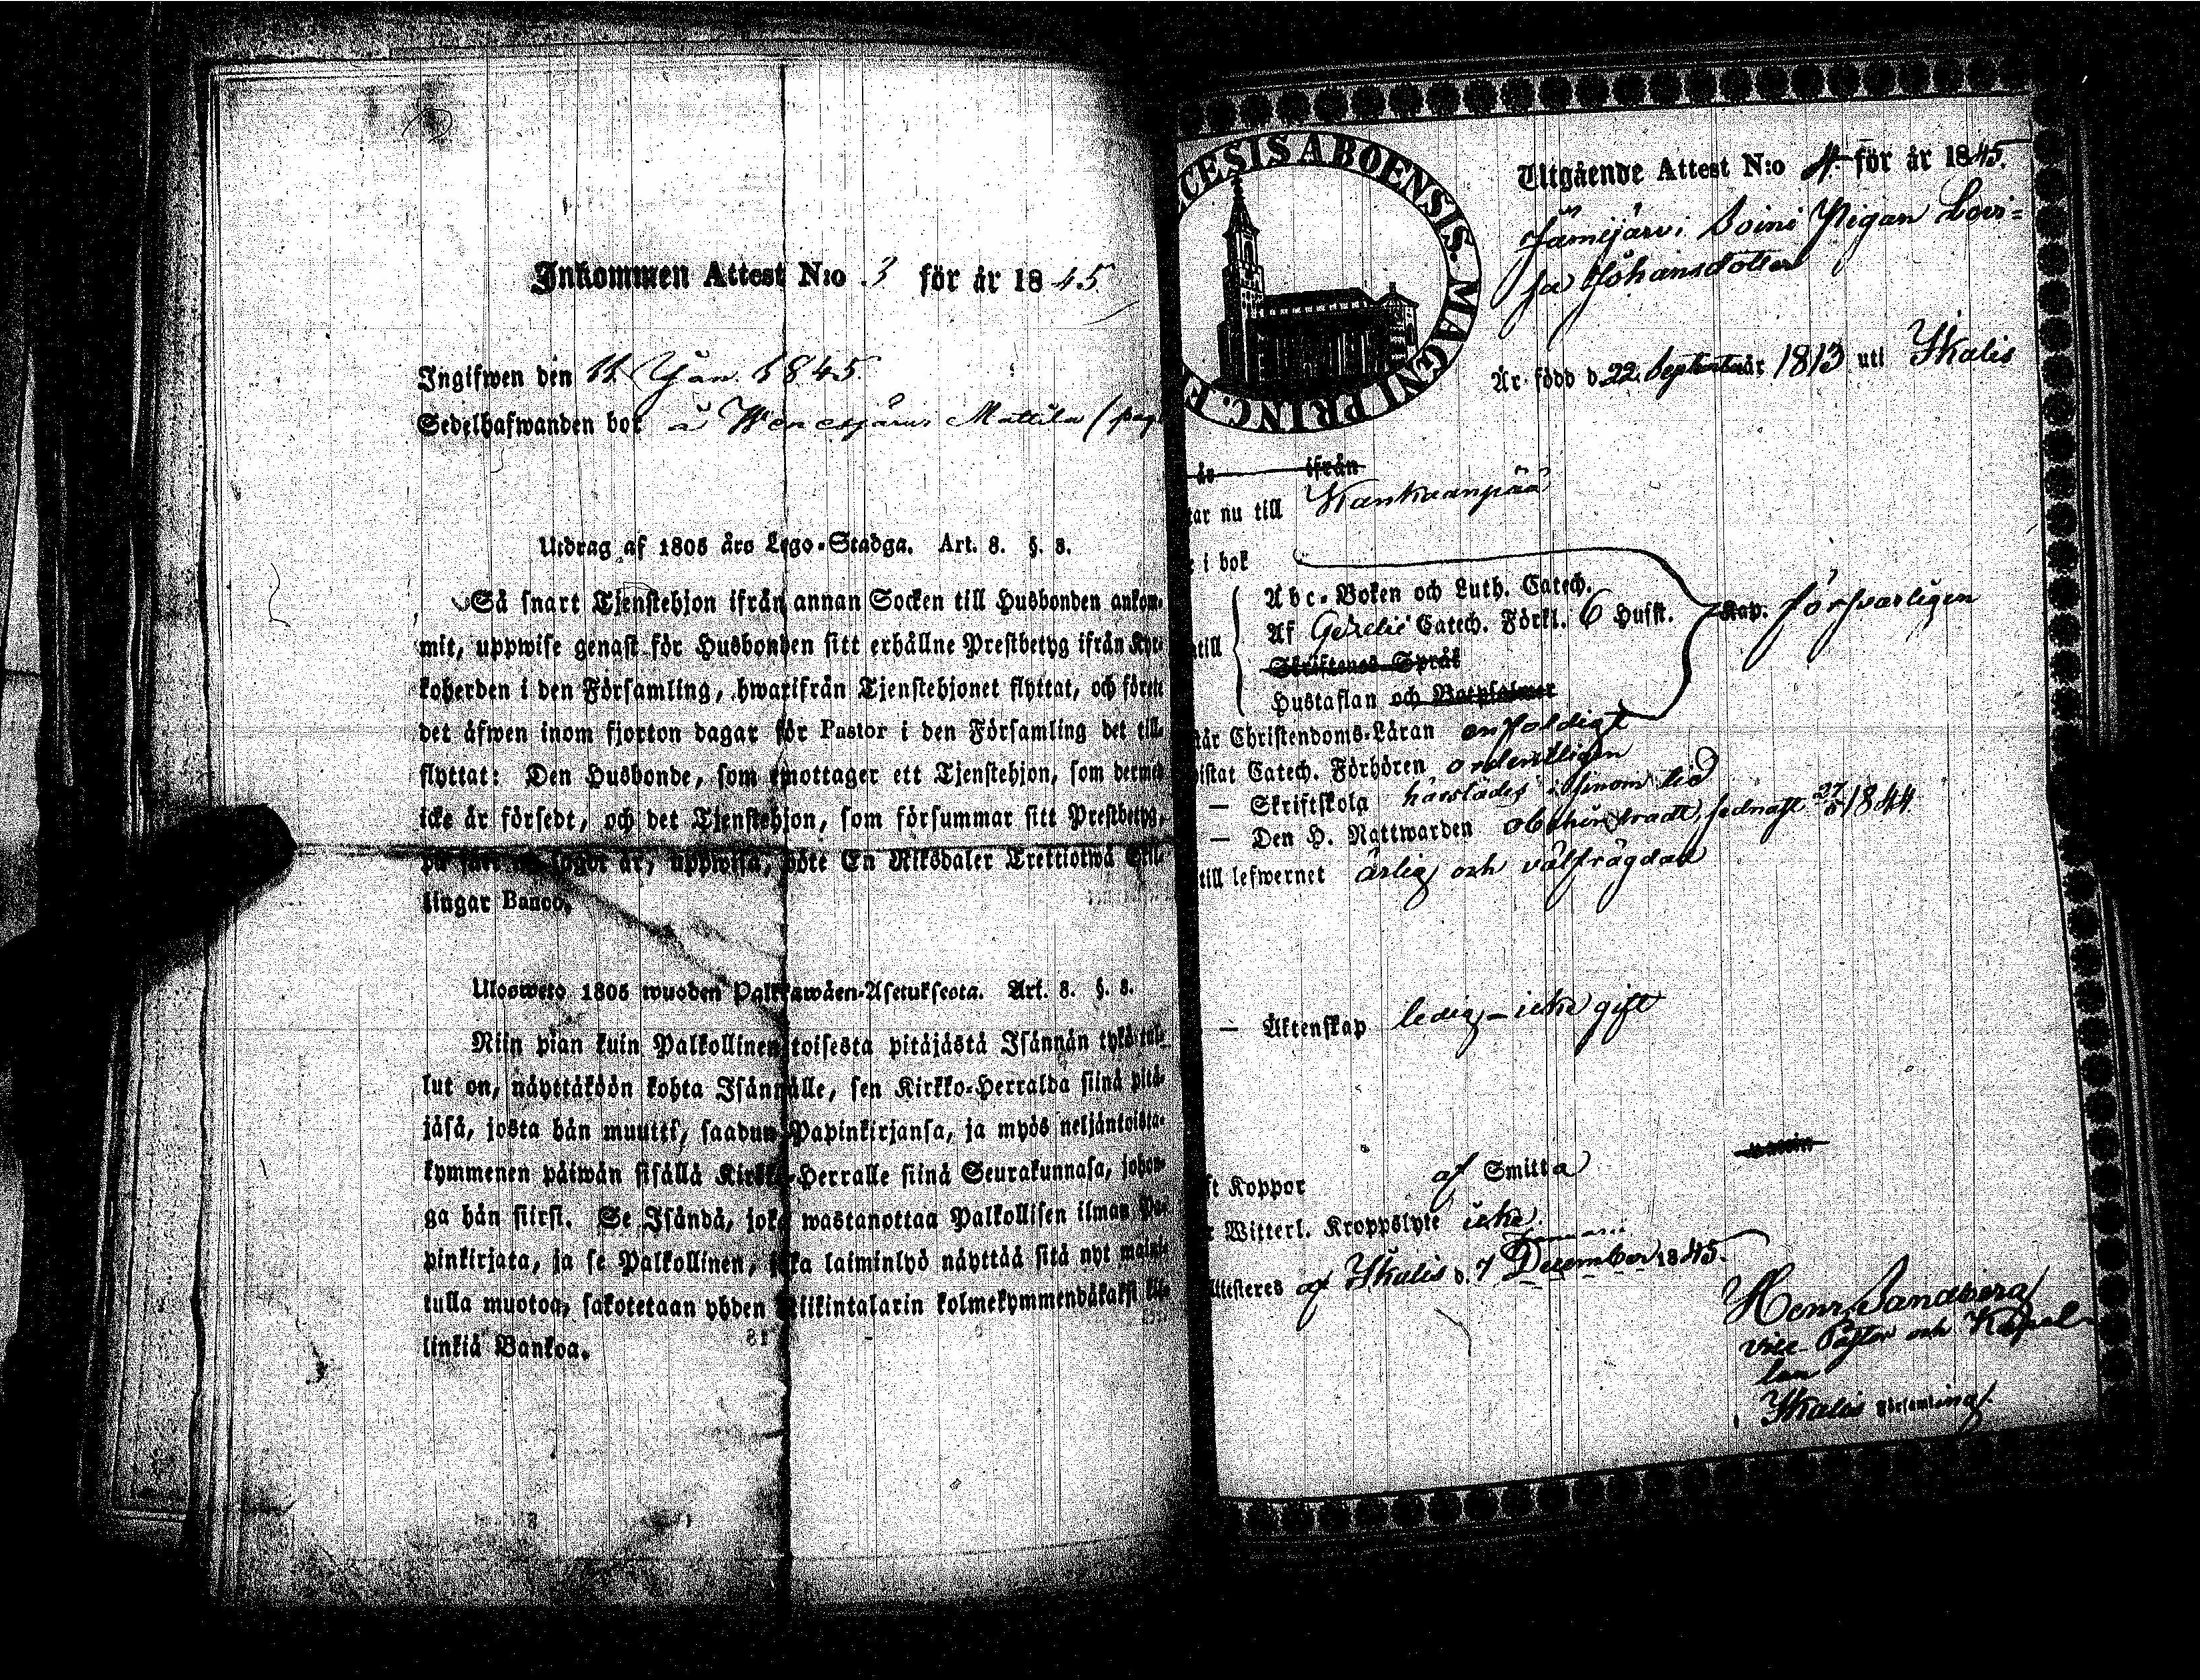 Inkommen Attest N:o 3 för år 1845
Ingifwen den 11 Jan 1845.
Sedelhafwanden bor å Wenesjärvi Mattila (pag.
Utdrag af 1805 års Lego-Stadga. Art. 8. §. 8.
Så snart Tjenstehjon ifrån annan Socken till Husbonden ankom-
mit, uppwise genast för Husbonden sitt erhållne Prestbetyg ifrån Kyr-
koherden i den Församling, hwarifrån Tjenstehjonet flyttat, och förete
det äfwen inom fjorton dagar för Pastor i den Församling det till-
flyttat: Den Husbonde, som emottager ett Tjenstehjon, som dermed
icke är försedt, och det Tjenstehjon, som försummar sitt Prestbetyg,
på sätt sagdt är, uppwisa, böte En Riksdaler Trettiotwå Skil-
lingar Banco.
Ulosweto 1805 wuoden Palkkawäen-Asetuksesta. Art. 8. §. 8.
Niin pian kuin Palkollinen toisesta pitäjästä Isännän tykö tul-
lut on, näyttäköön kohta Isännälle, sen Kirkko-Herralda siinä pitä-
jäsä, josta hän muutti, saadun Papinkirjansa, ja myös neljäntoista-
kymmenen päiwän sisällä Kirkko-Herralle siinä Seurakunnasa, johon-
ga hän siirsi. Se Isändä, joka wastanottaa Palkollisen ilman Pa-
pinkirjata, ja se Palkollinen, joka laiminlyö näyttää sitä nyt maini-
tulla muotoa, sakotetaan yhden Riikintalarin kolmekymmendäkaksi kil-
linkiä Bankoa.
CESIS ABOENSIS. MAGNI PRINC. F
Utgående Attest N:o 4 för år 1845.
Jämijärvi Soini Pigan Lovi=
sa Johansdotter
Är född d. 22 September år 1813 uti Ikalis
år ifrån
tar nu till Kankaanpää
i bok
Abc-Boken och Luth. Catech.
Af Gezelii Catech. Förkl. 6 Husst. Kap. försvarligen
till
Skriftenes Språk
Hustaflan och Botpsalmer
tår Christendoms-Läran enfoldigt
istat Catech. Förhören ordentligen
— Skriftskola härstädes i sinom tid
— Den H. Nattwarden obehindradt, sednast 27/5 1844.
till lefwernet ärlig och välfrägdad
— Äktenskap ledig – icke gift
ft Koppor af Smitta
Witterl. Kroppslyte icke.
Attesteres af Ikalis d. 7 December 1845.
Henr. Sandberg
vice Pastor och Kapel-
lan
i Ikalis Församling.